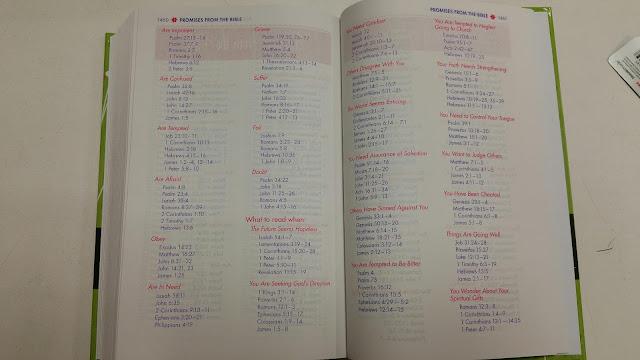 1450 PROMISES FROM THE BIBLE
Are Impatient
Psalm 27:13–14
Psalm 37:7
Romans
1 Timothy 1:16
Hebrews 6:12
2 Peter 3:9
Are Confused
Psalm
Isaiah
John 8:12
John 14:27
1 Corinthians 2:15–16
James 1:5
Are Tempted
Job 23:10–11
1 Corinthians 10:13
Hebrews 2:18
Hebrews 4:15–16
James 1:2–4, 12–14
1 Peter 5:8–10
Are Afraid
Psalm 4:8
Psalm 23:4
Isaiah 35:4
Romans 8:37–39
2 Corinthians 1:10
2 Timothy 1:7
Hebrews 13:6
Obey
Exodus
Matthew 16:27
John 8:31–32
John 14:21, 23
James 1:25
Are in Need
Isaiah 58:11
John 6:35
2 Corinthians 9:10–11
Ephesians 3:20–21
Philippians 4:19
Grieve
Psalm 119:50, 76–77
Jeremiah 31:13
Matthew 5:4
John 16:20–22
1 Thessalonians 4:13–14
Revelation 21:3–4
Suffer
Psalm 34:19
Nahum 1:7
John 16:33
Romans 8:16–17
1 Peter 2:20–21
1 Peter 4:12–13
Fail
Joshua 1:9
Romans 3:23–24
Romans 5:8
Hebrews 10:36
1 John 1:8–9
Doubt
Psalm 34:22
John 3:18
John 11:25–26
Romans 4:5
1 John 4:15–16
What to read when:
The Future Seems Hopeless
Isaiah 54:1–7
Lamentations 3:19–24
1 Corinthians 15:20–28
1 Peter 1:1–9
1 Peter 5:10–11
Revelation 11:15–19
You Are Seeking God's Direction
1 Kings 3:1–14
Proverbs 2:1–6
Romans 12:1–3
Ephesians 5:15–17
Colossians 1:9–14
James 1:5–8
PROMISES FROM THE BIBLE 1451
You Need Comfort
Isaiah 12
Isaiah 40:1–11
Jeremiah 31:10–13
2 Corinthians 1:3–7
2 Corinthians 7:6–13
Others Disagree With You
Matthew 7:1–5
Romans 12:9–21
Romans 14:1–15:7
2 Corinthians 5:11–21
The World Seems Enticing
Genesis 3:1–7
2 Corinthians 6:14–7:1
James 1:21–27
James 4:4–10
1 John 2:15–17
You Need Assurance of Salvation
Psalm 91:14–16
Micah 7:18–20
John 3:14–21
John 11:25–26
Acts 16:31–34
1 John 5:9–13
Others Have Sinned Against You
Genesis 33:1–4
Genesis 50:15–20
Matthew 6:14–15
Matthew 18:21–35
Colossians 3:12–14
James 2:12–13
You Are Tempted to Be Bitter
Psalm 4
Psalm 73
Proverbs 16:32
1 Corinthians 13:5
Ephesians 4:29–5:2
Hebrews 12:14–15
You Are Tempted to Neglect
Going to Church
Exodus 20:8–11
Psalm 95:1–7
Acts 2:42–47
Hebrews 10:19–25
Your Faith Needs Strengthening
Genesis 15:1–6
Proverbs 3:5–8
Romans 5:1–11
1 Corinthians 9:24–27
Hebrews 10:19–25, 35–39
Hebrews 11:1–12:13
You Need to Control Your Tongue
Psalm 39:1
Proverbs 10:18–20
Matthew 15:1–20
James 3:1–12
You Want to Judge Others
Matthew 7:1–5
1 Corinthians 4:1–5
James 2:1–13
James 4:11–12
You Have Been Cheated
Genesis 29:14–30
Matthew 18:15–17
1 Corinthians 6:1–8
James 5:1–8
Things Are Going Well
Job 31:24–28
Proverbs 15:27
Luke 12:13–21
1 Timothy 6:3–19
Hebrews 13:5
James 2:1–17
You Wonder About Your
Spiritual Gifts
Romans 12:3–8
1 Corinthians 1:4–9
1 Corinthians 12:1–14:25
1 Peter 4:7–11